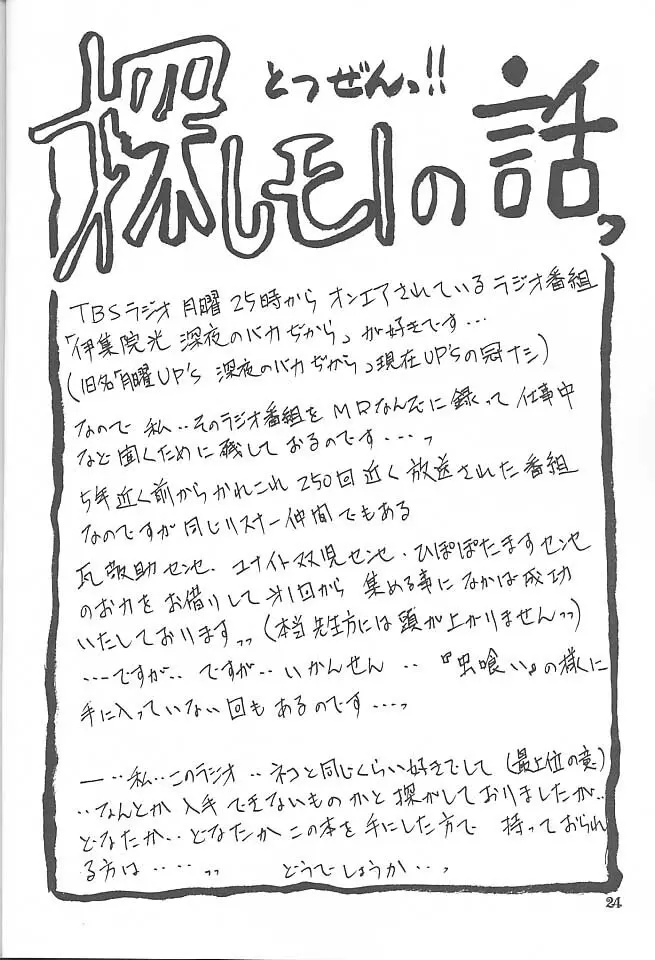 とつぜんっ!!
探しモノの話っ
TBSラジオ 月曜 25時から オンエアされている ラジオ番組
「伊集院光 深夜のバカぢから」が好きです…
(旧名「月曜UP's 深夜のバカぢから」現在UP'sの冠ナシ)
なので 私‥そのラジオ番組を MDなんぞに録って 仕事中
など聞くために残しておるのです…っ
5年近く前からかれこれ 250回近く放送された番組
なのですが同じリスナー仲間でもある
瓦敬助センセ．ユナイト双児センセ・ひぽぽたますセンセ
のお力をお借りして 第1回から 集める事に なかば成功
いたしております〟(本当先生方には頭が上がりませんっっ)
…ですが‥ ですが‥ いかんせん ‥ 『虫喰い』の様に
手に入っていない回もあるのです…っ
―‥私…このラジオ‥ネコと同じくらい好きでして(最上位の意)
‥なんとか入手できないものかと探がしておりましたが‥
どなたか‥どなたかこの本を手にした方で 持っておられ
る方は‥‥〟 どうでしょうか…っ
24